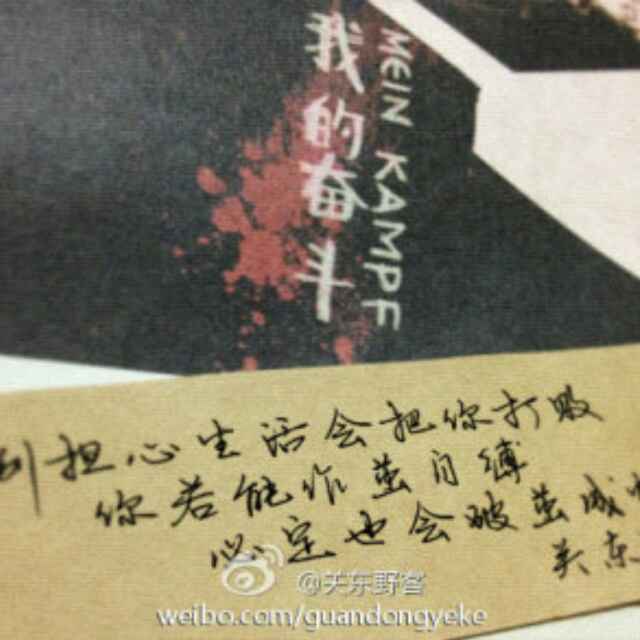 我的奋斗
MEIN KAMPF
别担心生活会把你打败
你若能作茧自缚
必定也会破茧成
关东
@关东野客
weibo.com/guandongyeke